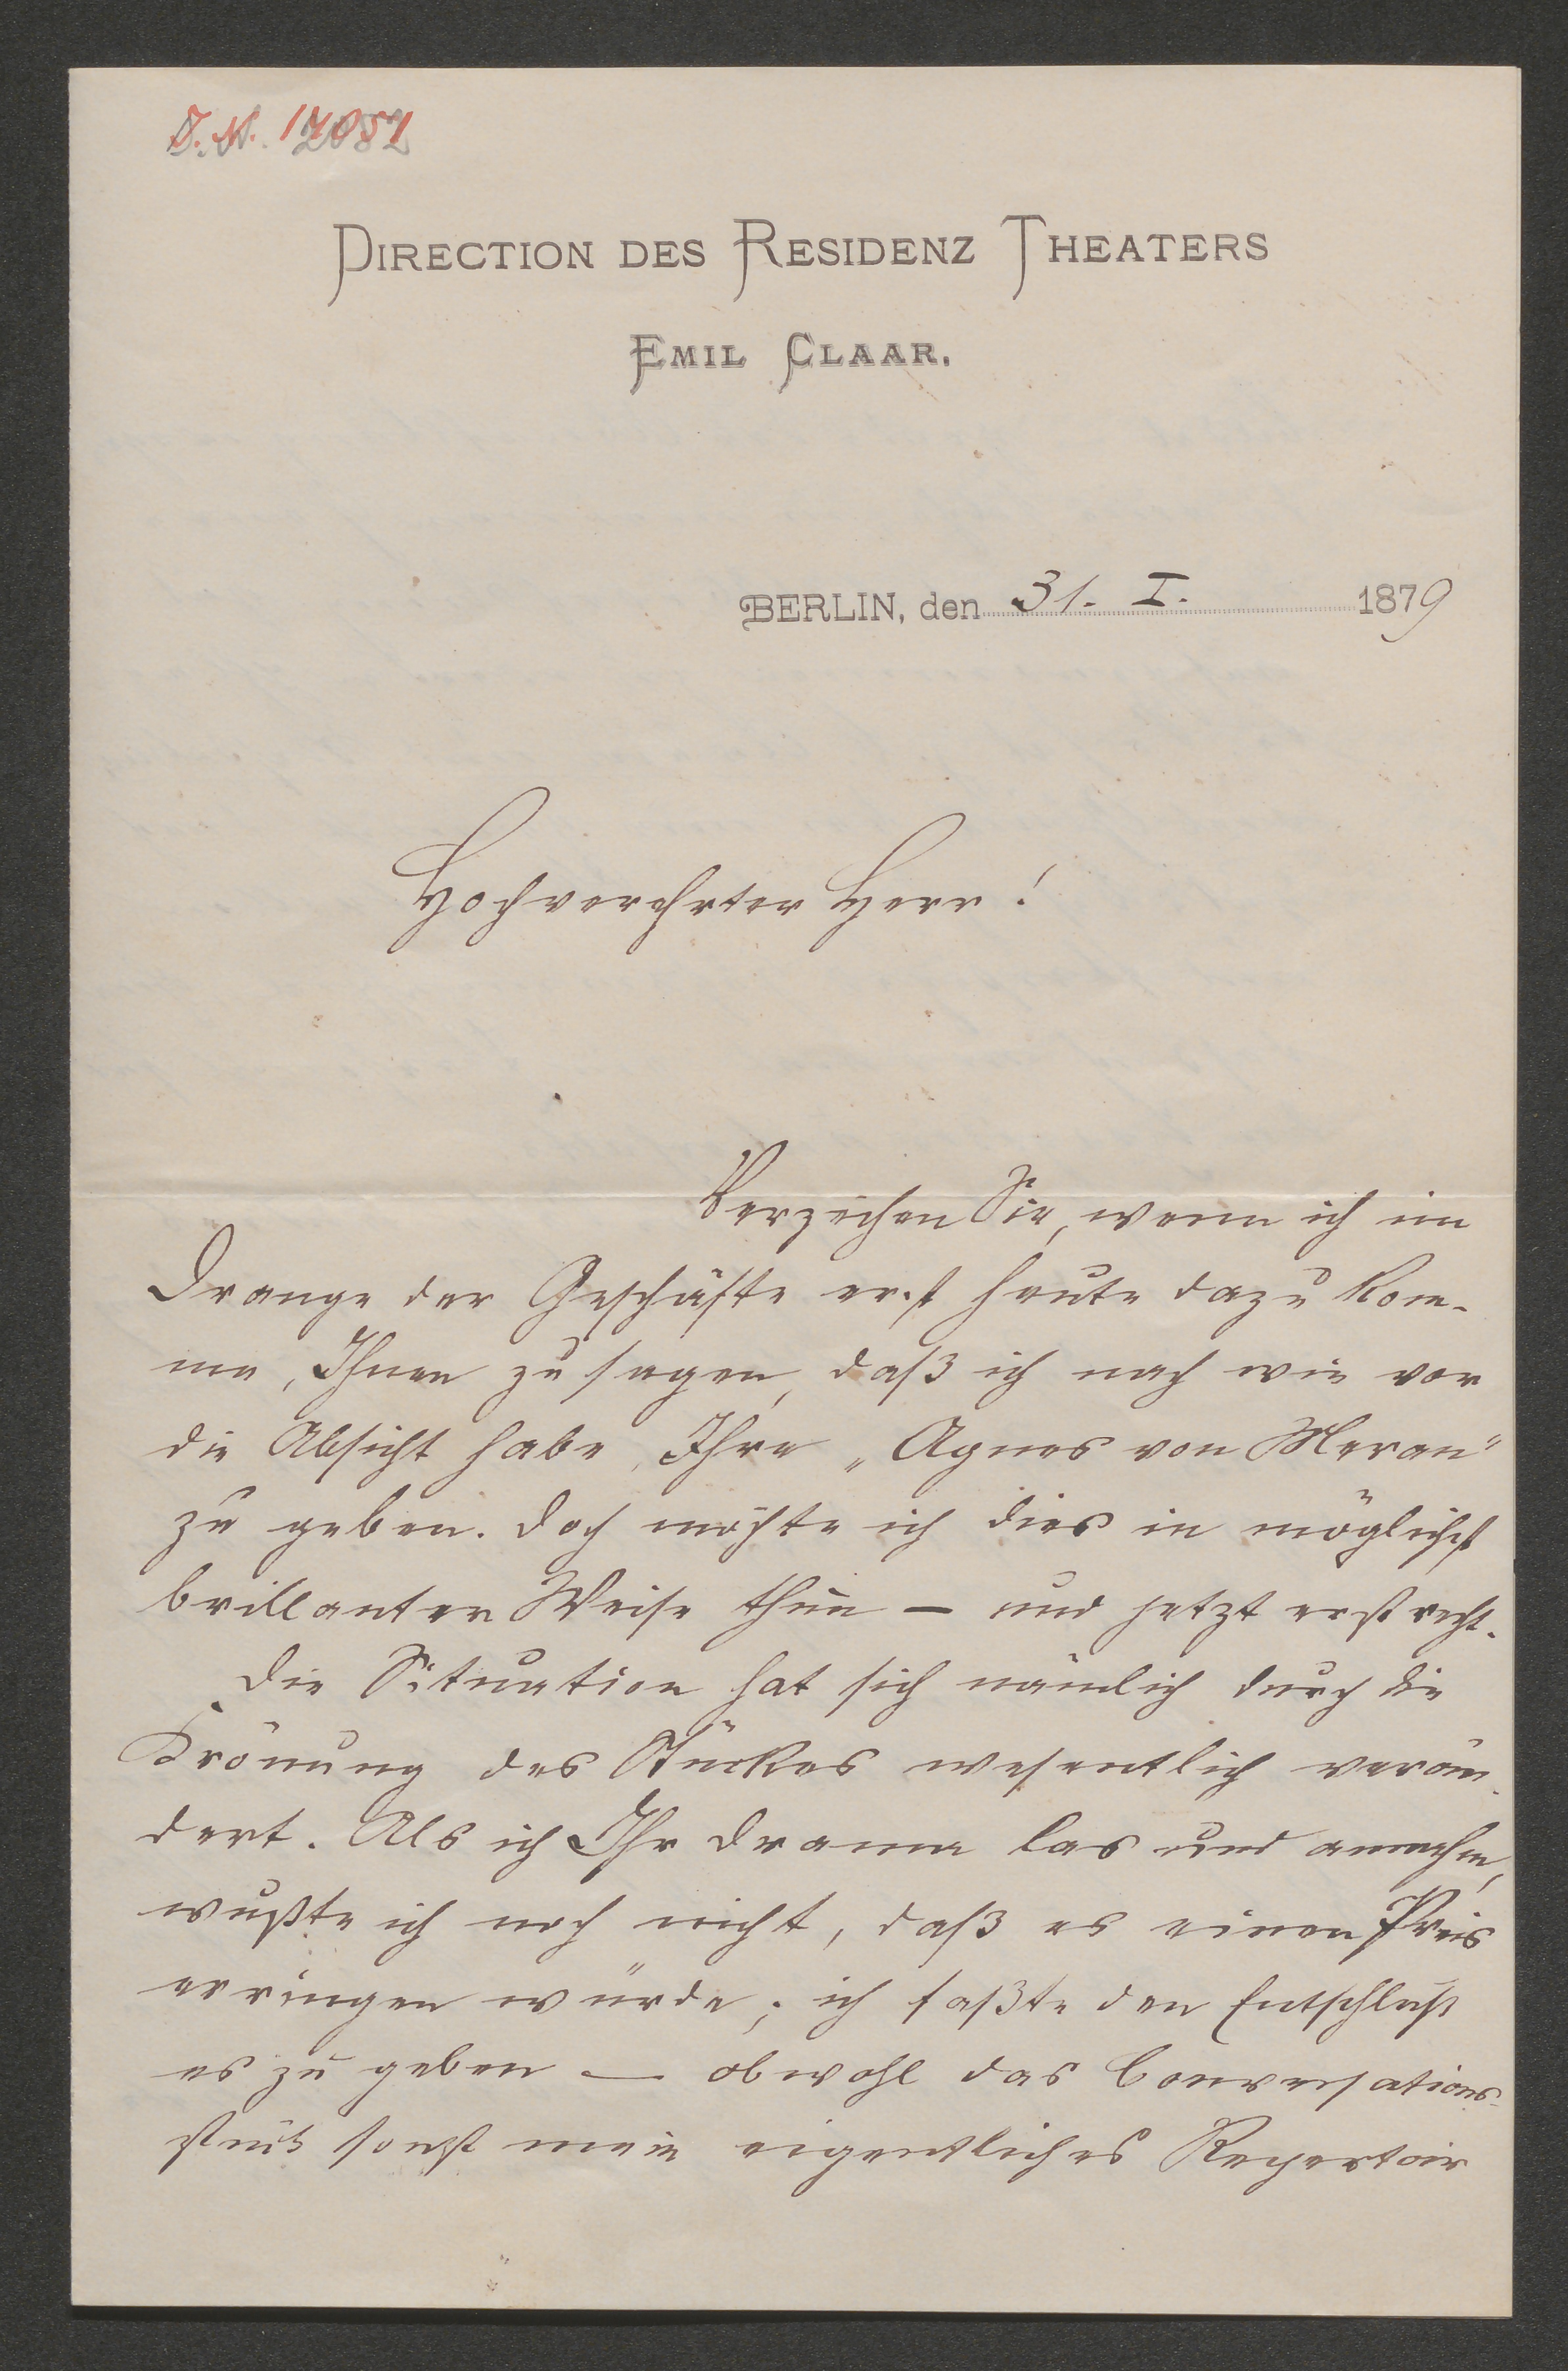 I. N. 17051
DIRECTION DES RESIDENZ THEATERS
EMIL CLAAR.
BERLIN, den 31. I. 1879
Hochverehrter Herr!
Verzeihen Sie, wenn ich im
Drange der Geschäfte erst heute dazu kom-
me, Ihnen zu sagen, daß ich nach wie vor
die Absicht habe, Ihre „Agnes von Meran"
zu geben. Doch möchte ich dies in möglichst
brillanter Weise thun — und jetzt erst recht.
Die Situation hat sich nämlich durch die
Krönung des Stückes wesentlich verän-
dert. Als ich Ihr Drama las und annahm,
wußte ich noch nicht, daß es einen Preis
erringen würde; ich faßte den Entschluß
es zu geben — obwohl das Conversations-
stück sonst mein eigentliches Repertoir